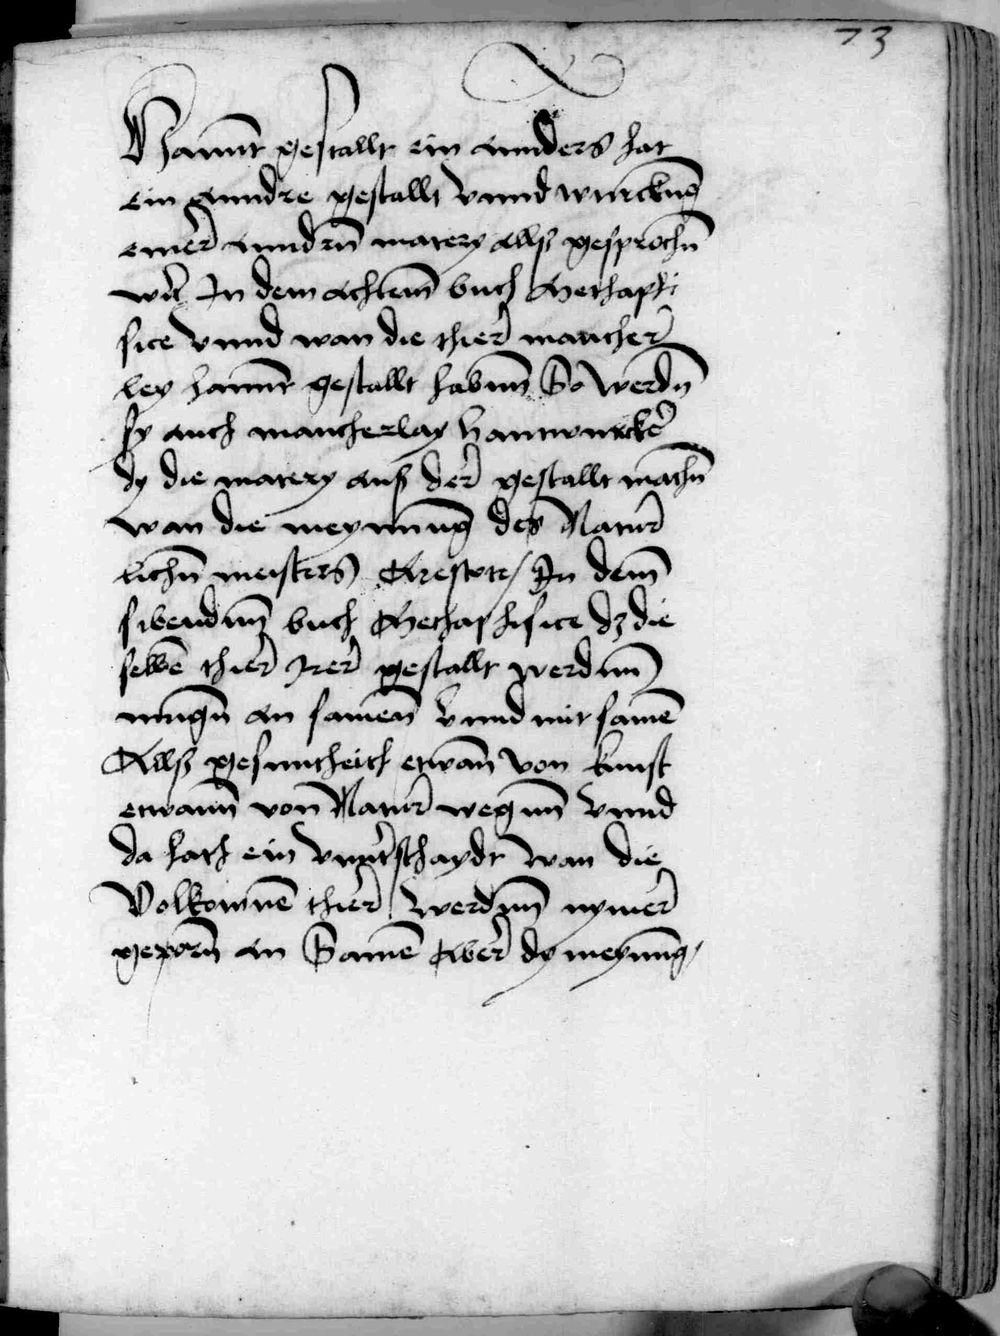 73
Hannt gestallt ein annders hat
ein anndre gestallt vnnd wurckng̅
einer anndrn̅ matery Alls gesprochn̅
wirt In dem achtem̅ buch Methaphi
sice vnnd wan die thier mancher
ley hannt gestallt habnn̅ So werdn̅
sy auch mancherlay hantwurcker
dy die matery aus der gestallt machn̅
wan die meynnng des Natur
lichn̅ meisters Arestote/ In dem̅
sibendnn̅ buch Methaphisice dz die
selbe̅ thier Irer gestallt werdnn̅
mugn̅ an samen̅ vnnd mit same̅
Alls gesuntheith etwan̅ von kunst
etwann̅ von Natur wegnn̅ vnnd
da hath ein vnntrschaydt wan die
Volkomne̅ thier werdnn̅ nymer
geporn̅ an Same̅ Aber dy meynung/